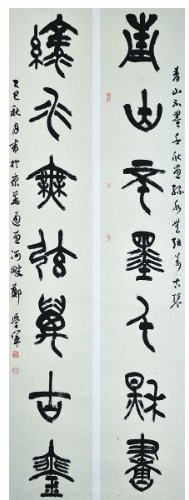 青山不墨千秋畫綠水無弦萬古琴
青山不墨千秋畫
綠水無弦萬古琴
乙巳秋月書於京華通惠河畔鄭